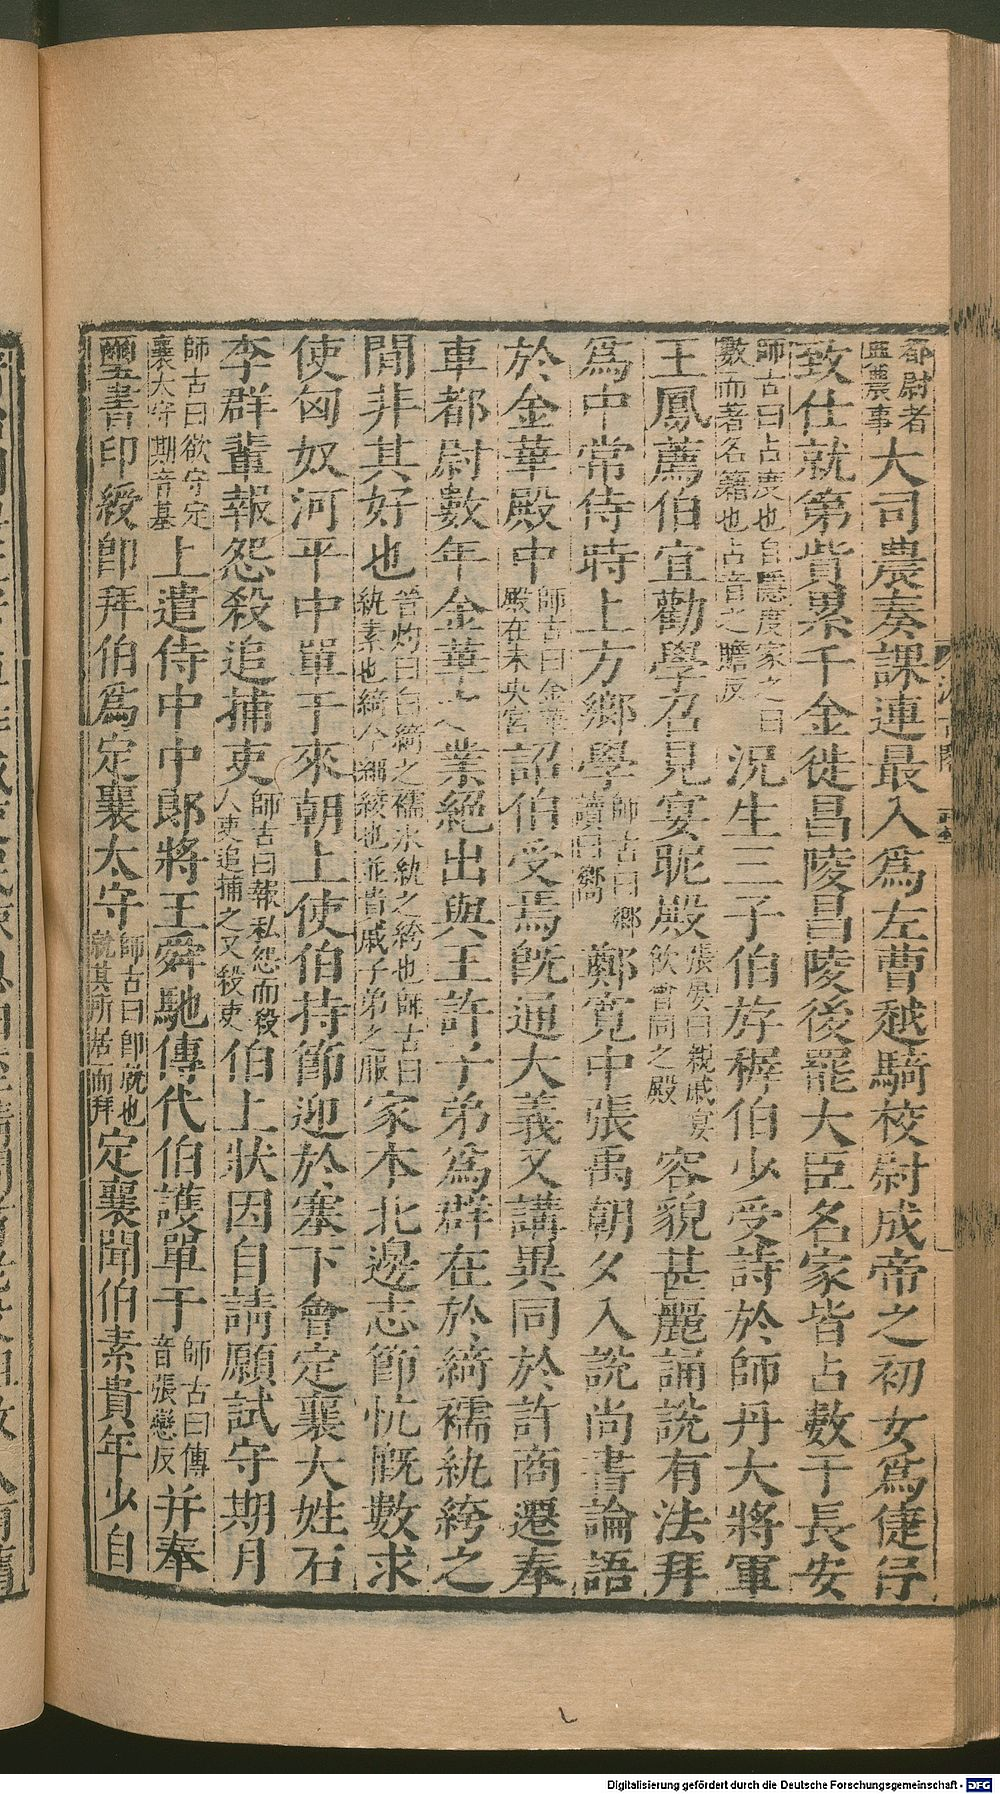 都尉者典農事大司農奏課連最入爲左曹越騎校尉成帝之初女爲倢伃
致仕就第貲累千金徙昌陵昌陵後罷大臣名家皆占數于長安
師古曰占度也自隱度家之口數而著名籍也占音之贍反況生三子伯斿穉伯少受詩於師丹大將軍
王鳳薦伯宜勸學召見宴昵殿張晏曰親戚宴飲會同之殿容貌甚麗誦說有法拜
爲中常侍時上方鄉學師古曰鄉讀曰嚮鄭寬中張禹朝夕入說尚書論語
於金華殿中師古曰金華殿在未央宮詔伯受焉旣通大義又講異同於許商遷奉
車都尉數年金華之業絕出與王許子弟爲群在於綺襦紈絝之
閒非其好也晉灼曰白綺之襦氷紈之絝也師古曰紈素也綺今細綾也並貴戚子弟之服家本北邊志節忼慨數求
使匈奴河平中單于來朝上使伯持節迎於塞下會定襄大姓石
李群輩報怨殺追捕吏師古曰報私怨而殺人吏追捕之又殺吏伯上狀因自請願試守期月
師古曰欲守定襄太守期音基上遣侍中中郎將王舜馳傳代伯護單于師古曰傳音張戀反并奉
璽書印綬卽拜伯爲定襄太守師古曰卽就也就其所居而拜定襄聞伯素貴年少自
Digitalisierung gefördert durch die Deutsche Forschungsgemeinschaft - DFG